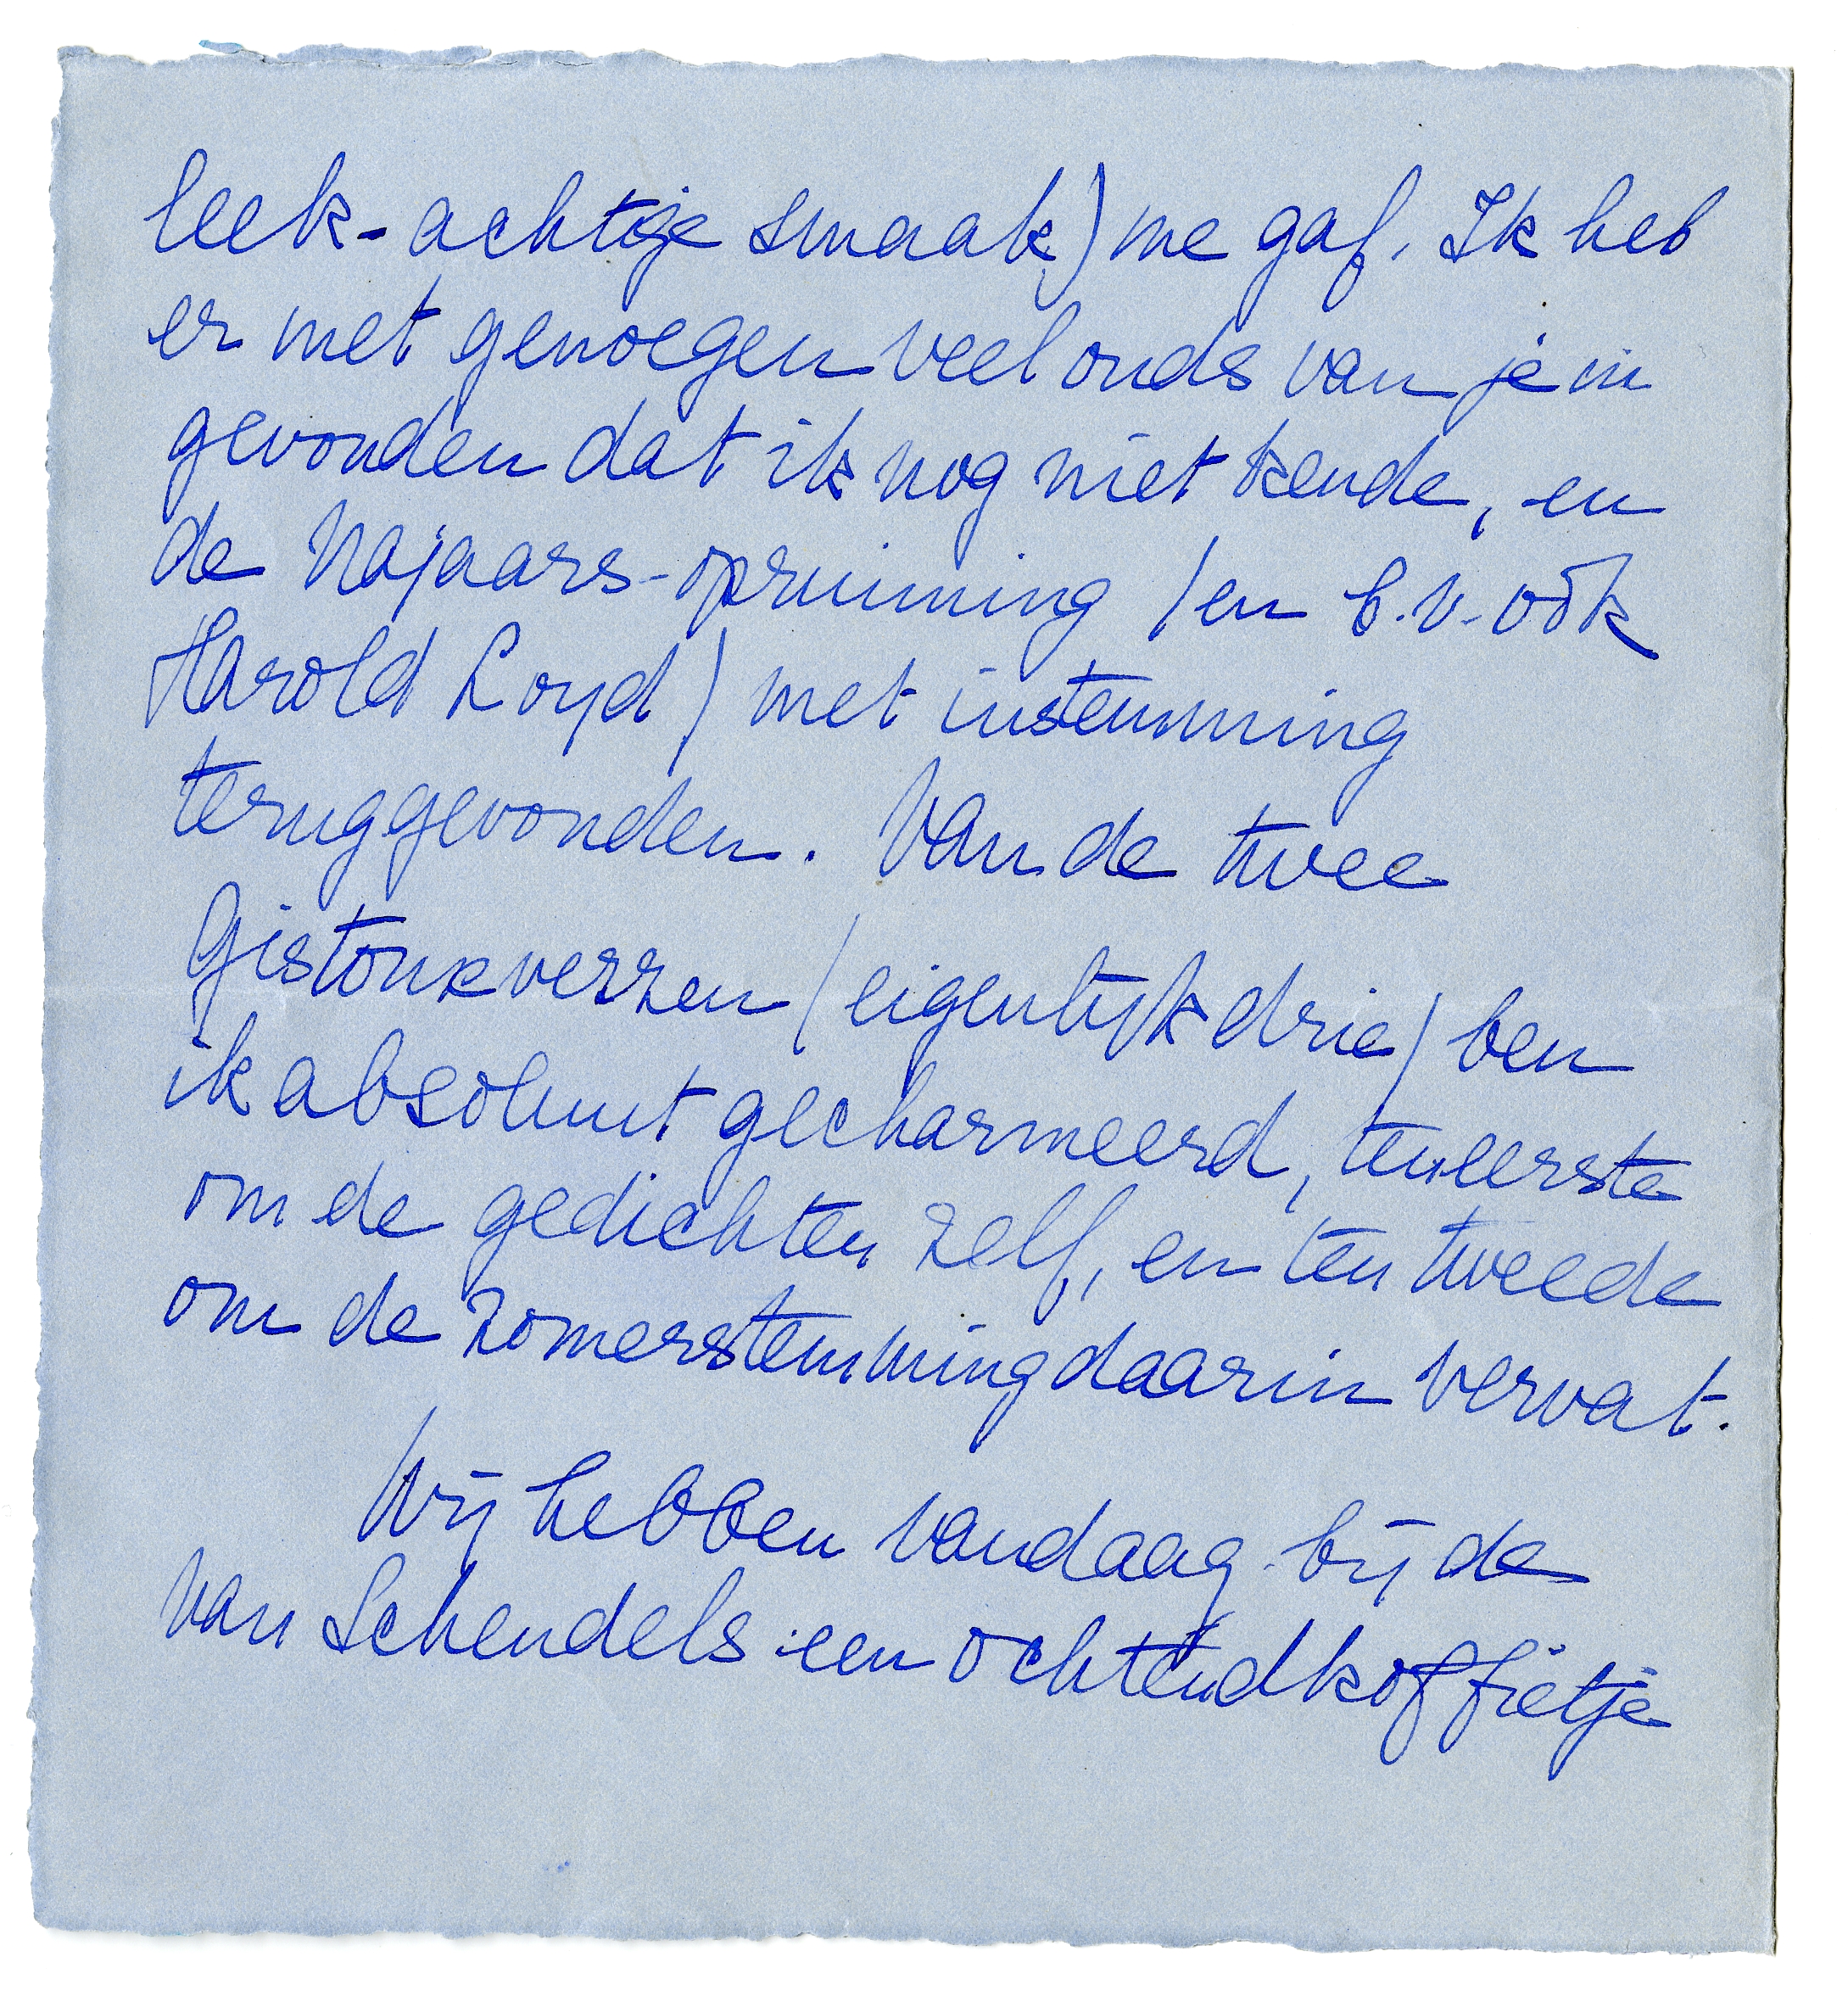 leek-achtige smaak) me gaf. Ik heb
er met genoegen veel ouds van je in
gevonden dat ik nog niet kende, en
de Najaars-opruiming (en b.v. oòk
Harold Loyd) met instemming
teruggevonden. Van de twee
Gistouxverzen (eigenlijk drie) ben
ik absoluut gecharmeerd, ten eerste
om de gedichten zelf, en ten tweede
om de zomerstemming daarin vervat.
Wij hebben vandaag bij de
van Schendels een ochtendkoffietje